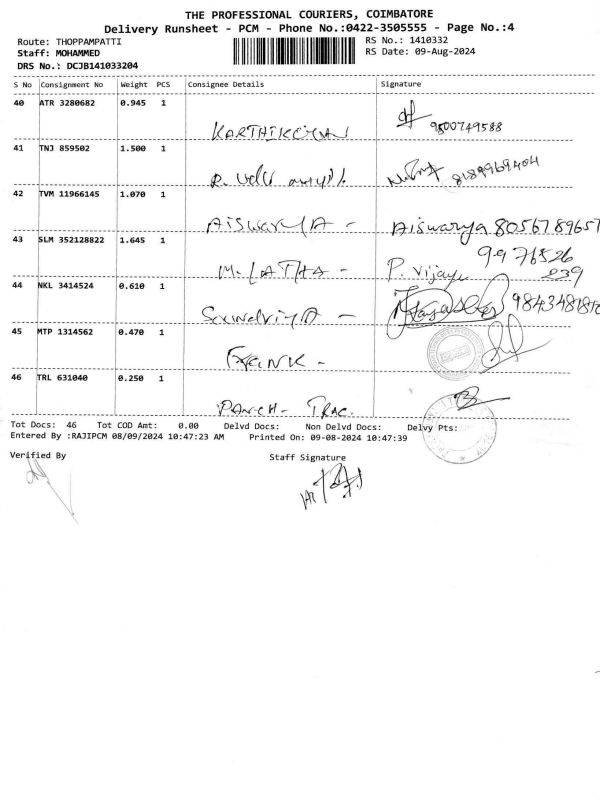 THE PROFESSIONAL COURIERS, COIMBATORE
Delivery Runsheet - PCM - Phone No.:0422-3505555 - Page No.:4
Route: THOPPAMPATTI
RS No.: 1410332
Staff: MOHAMMED
RS Date: 09-Aug-2024
DRS No.: DCJB141033204
S No Consignment No Weight PCS Consignee Details Signature
40 ATR 3280682 0.945 1
KARTHIKEYAN 9500749588
41 TNJ 859502 1.500 1
R. 8189969404
42 TVM 11966145 1.070 1
AISWARYA - Aiswarya 8056789657
43 SLM 352128822 1.645 1
M. LATHA - P. Vijaya 9976526
239
44 NKL 3414524 0.610 1
Soundariya -
45 MTP 1314562 0.470 1
46 TRL 631040 0.250 1
Tot Docs: 46 Tot COD Amt: 0.00 Delvd Docs: Non Delvd Docs: Delvy Pts:
Entered By :RAJIPCM 08/09/2024 10:47:23 AM Printed On: 09-08-2024 10:47:39
Verified By
Staff Signature